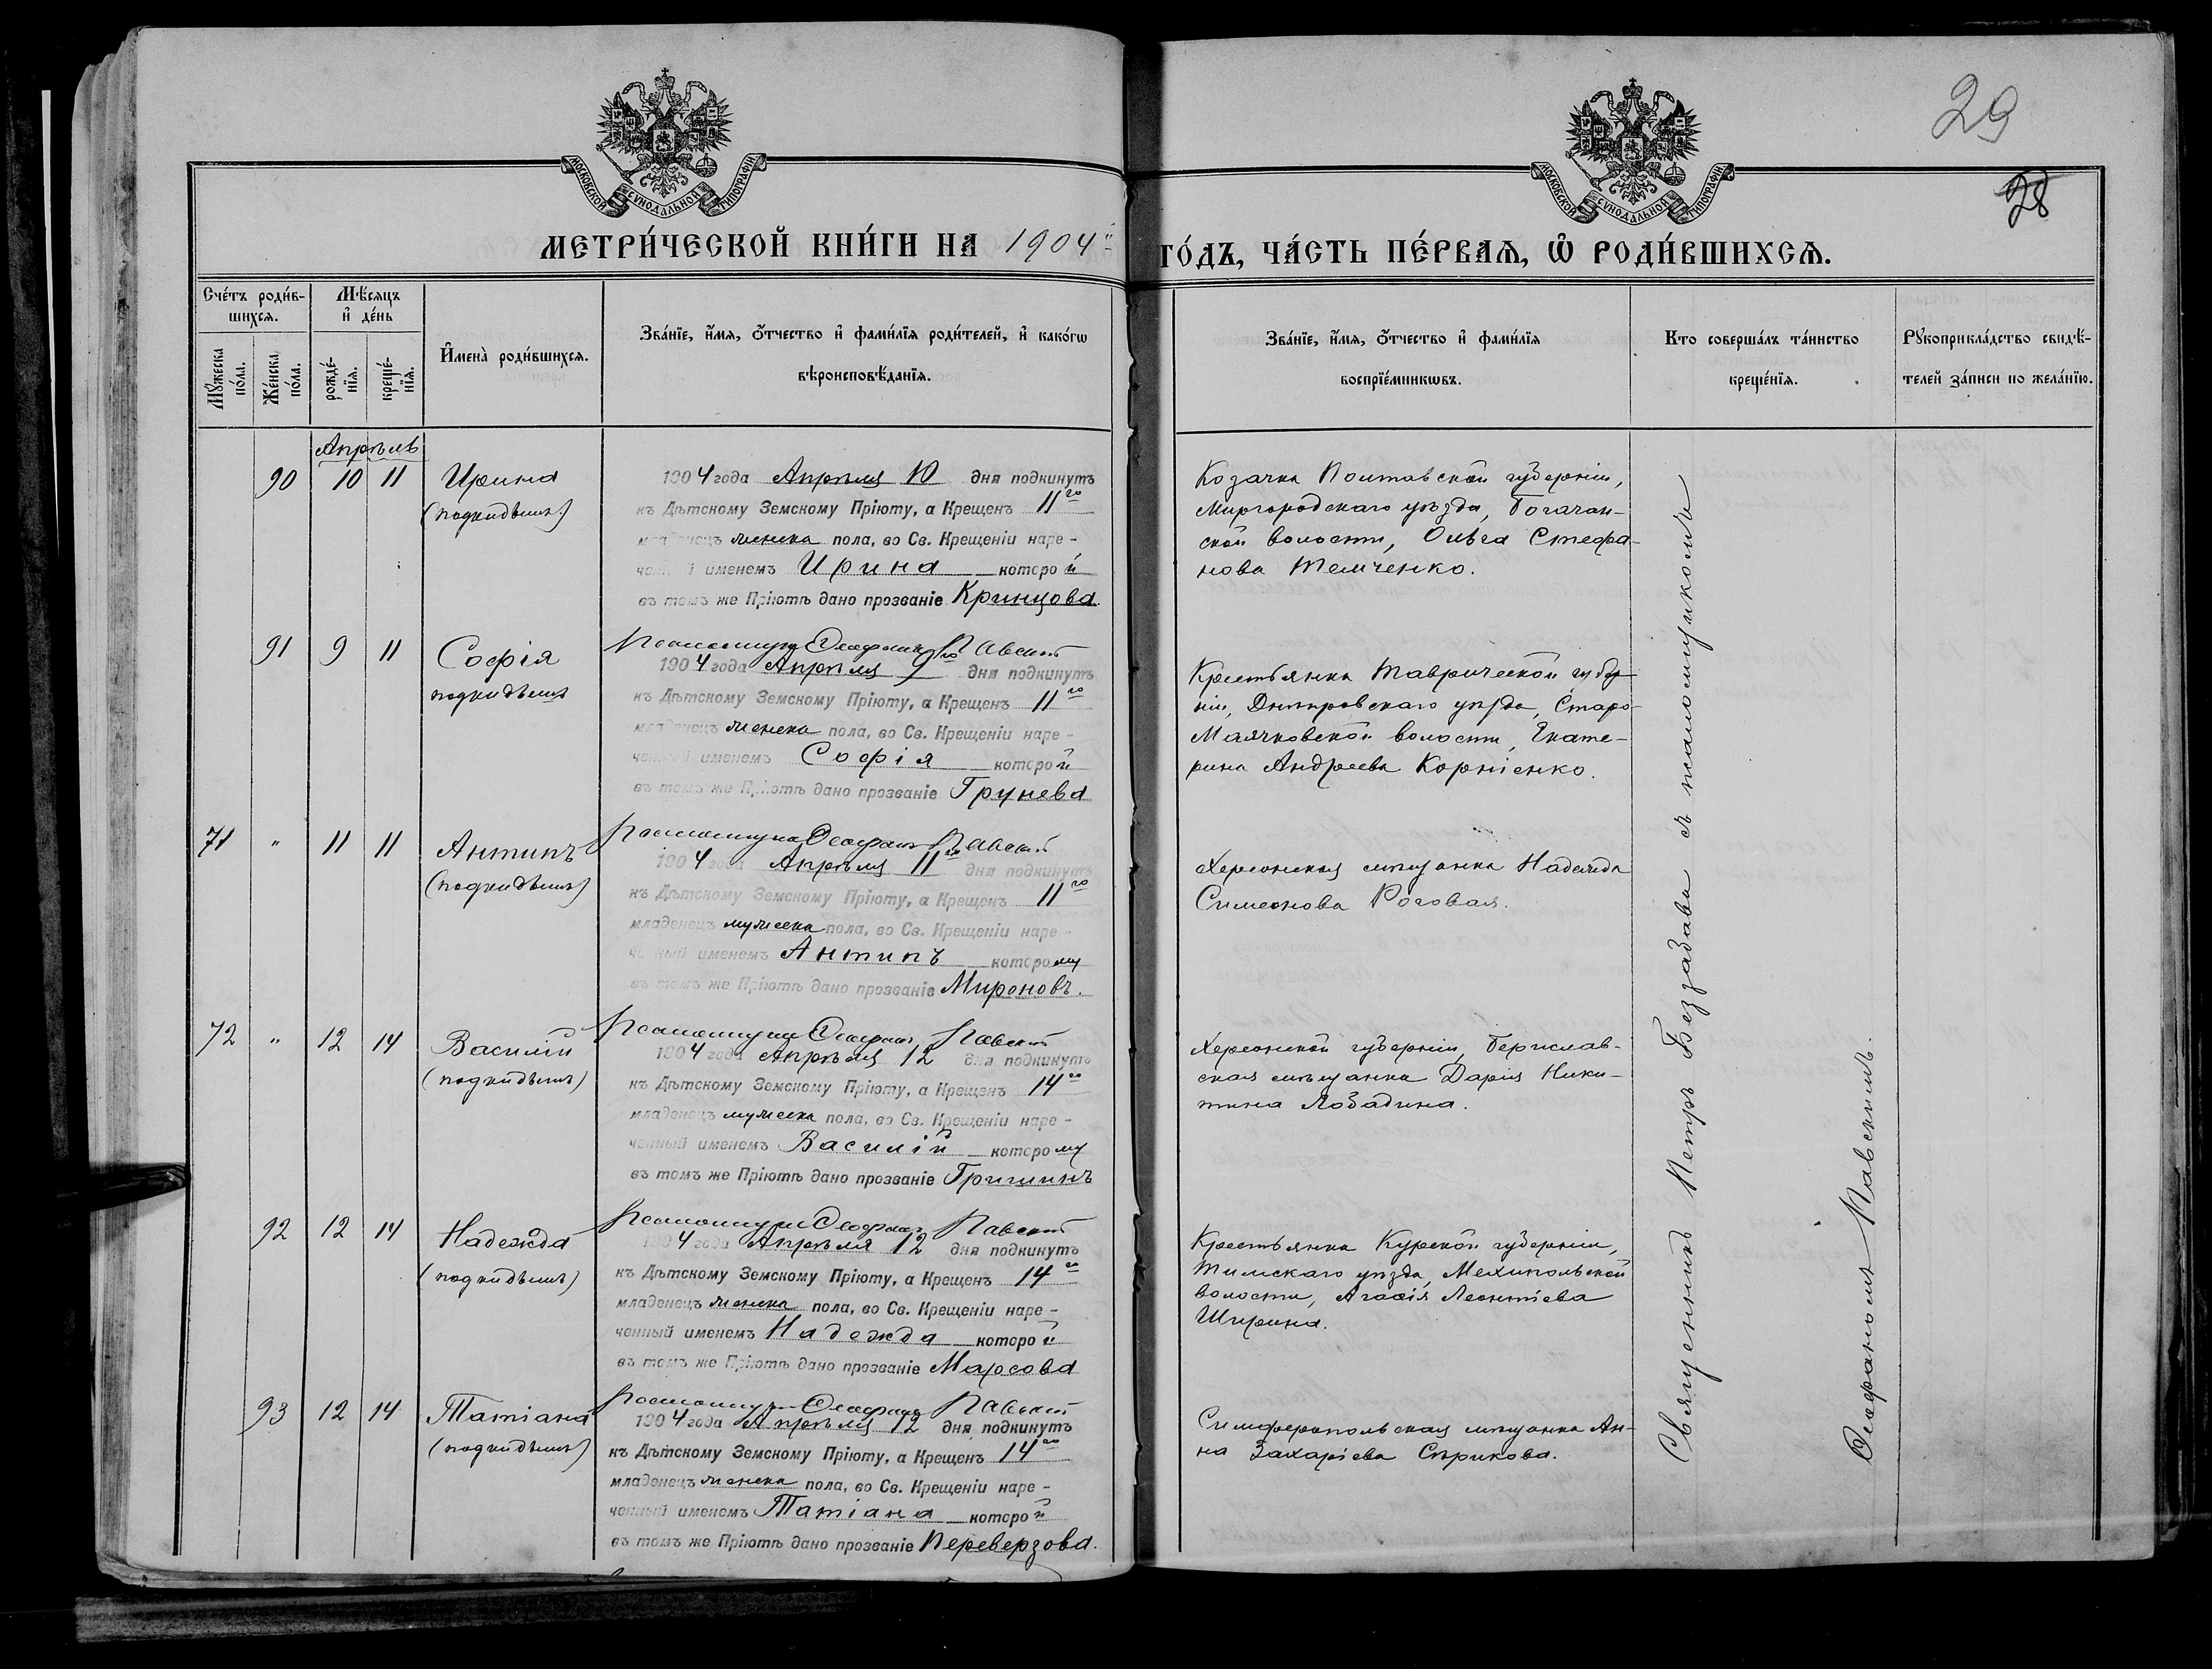 29
28
МОСКОВСКОЙ СѴНОДАЛЬНОЙ ТИПОГРАФІИ
МОСКОВСКОЙ СѴНОДАЛЬНОЙ ТИПОГРАФІИ
МЕТРИ́ЧЕСКОЙ КНИ́ГИ НА 1904 ГО́ДЪ, ЧА́СТЬ ПЕ́РВАѦ, Ѡ РОДИ́ВШИХСѦ.
Сче́тъ роди́в-
шихсѧ.
Мѣ́сяцъ
и҆ де́нь
Мꙋжеска
по́ла.
Же́нска
по́ла.
рожде́-
нїѧ.
креще́-
нїѧ.
И҆мена̀ роди́вшихсѧ.
Зва́нїе, и҆́мѧ, ѻ҆́тчество и҆ фами́лїѧ роди́телей, и҆ како́гѡ
вѣроисповѣ́данїѧ.
Зва́нїе, и҆́мѧ, ѻ҆́тчество и҆ фами́лїѧ
воспрїе́мникѡвъ.
Кто соверша́лъ та́инство
креще́нїѧ.
Рꙋкоприкла́дство свидѣ́-
телей за́писи по жела́нїю.
Апрѣль
90 10 11 Ирина
(подкидышъ)
1904 года Апрѣля 10 дня подкинутъ
къ Дѣтскому Земскому Пріюту, а Крещенъ 11го
младенецъ женска пола, во Св. Крещеніи наре-
ченный именемъ Ирина которой
въ томъ же Пріютѣ дано прозваніе Кринцова.
Козачка Полтавской губерніи,
Миргородскаго уѣзда, Богачан-
ской волости, Ольга Стефа-
нова Темченко.
91 9 11 Софія
подкидышъ
Псаломщикъ Ѳеофанъ Павскій
1904 года Апрѣля 9го дня подкинутъ
къ Дѣтскому Земскому Пріюту, а Крещенъ 11го
младенецъ женска пола, во Св. Крещеніи наре-
ченный именемъ Софія которой
въ томъ же Пріютѣ дано прозваніе Грунева
Крестьянка Таврической губер-
ніи, Днѣпровскаго уѣзда, Старо-
Маячковской волости, Екате-
рина Андреева Корніенко.
71 " 11 11 Антипъ
(подкидышъ)
Псаломщикъ Ѳеофанъ Павскій
1904 года Апрѣля 11го дня подкинутъ
къ Дѣтскому Земскому Пріюту, а Крещенъ 11го
младенецъ мужеска пола, во Св. Крещеніи наре-
ченный именемъ Антипъ которому
въ томъ же Пріютѣ дано прозваніе Мироновъ.
Херсонская мѣщанка Надежда
Симеонова Роговая.
72 " 12 14 Василій
(подкидышъ)
Псаломщикъ Ѳеофанъ Павскій
1904 года Апрѣля 12 дня подкинутъ
къ Дѣтскому Земскому Пріюту, а Крещенъ 14го
младенецъ мужеска пола, во Св. Крещеніи наре-
ченный именемъ Василій которому
въ томъ же Пріютѣ дано прозваніе Гришинъ
Херсонской губерніи, Берислав-
ская мѣщанка Дарія Ники-
тина Лобадина.
92 12 14 Надежда
(подкидышъ)
Псаломщикъ Ѳеофанъ Павскій
1904 года Апрѣля 12 дня подкинутъ
къ Дѣтскому Земскому Пріюту, а Крещенъ 14го
младенецъ женска пола, во Св. Крещеніи наре-
ченный именемъ Надежда которой
въ томъ же Пріютѣ дано прозваніе Марсова
Крестьянка Курской губерніи,
Тимскаго уѣзда,
волости, Агафія Леонтіева
Ширина.
93 12 14 Татіана
(подкидышъ)
Псаломщикъ Ѳеофанъ Павскій
1904 года Апрѣля 12 дня подкинутъ
къ Дѣтскому Земскому Пріюту, а Крещенъ 14го
младенецъ женска пола, во Св. Крещеніи наре-
ченный именемъ Татіана которой
въ томъ же Пріютѣ дано прозваніе Переверзова.
Симферопольская мѣщанка Ан-
на Захаріева Сѣрикова.
Священникъ Петръ Беззабава съ псаломщикомъ
Ѳеофаномъ Павскимъ.